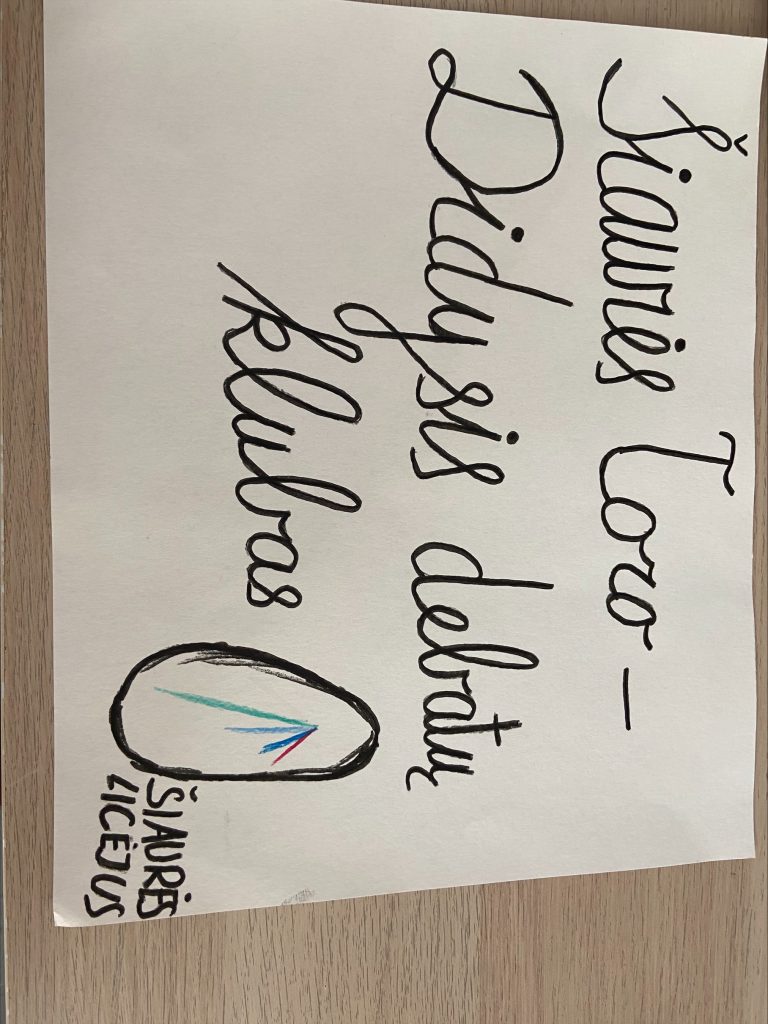 Šiaurės Toro -
Didysis debatų
klubas
ŠIAURĖS
LICĖJUS